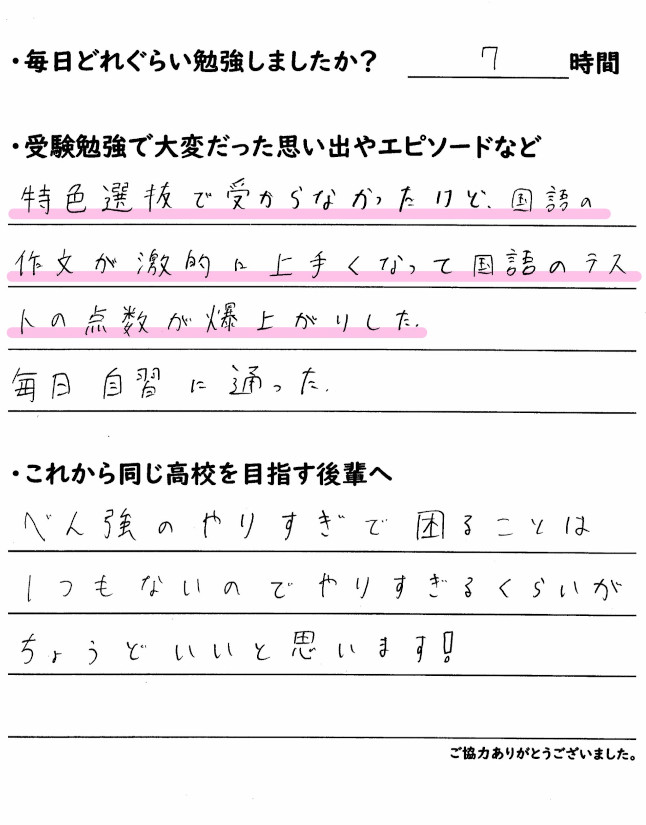 ・毎日どれぐらい勉強しましたか？ 7 時間
・受験勉強で大変だった思い出やエピソードなど
特色選抜で受からなかったけど、国語の
作文が激的に上手くなって国語のテス
トの点数が爆上がりした.
毎日自習に通った.
・これから同じ高校を目指す後輩へ
べん強のやりすぎで困ることは
1つもないのでやりすぎるくらいが
ちょうどいいと思います!
ご協力ありがとうございました。